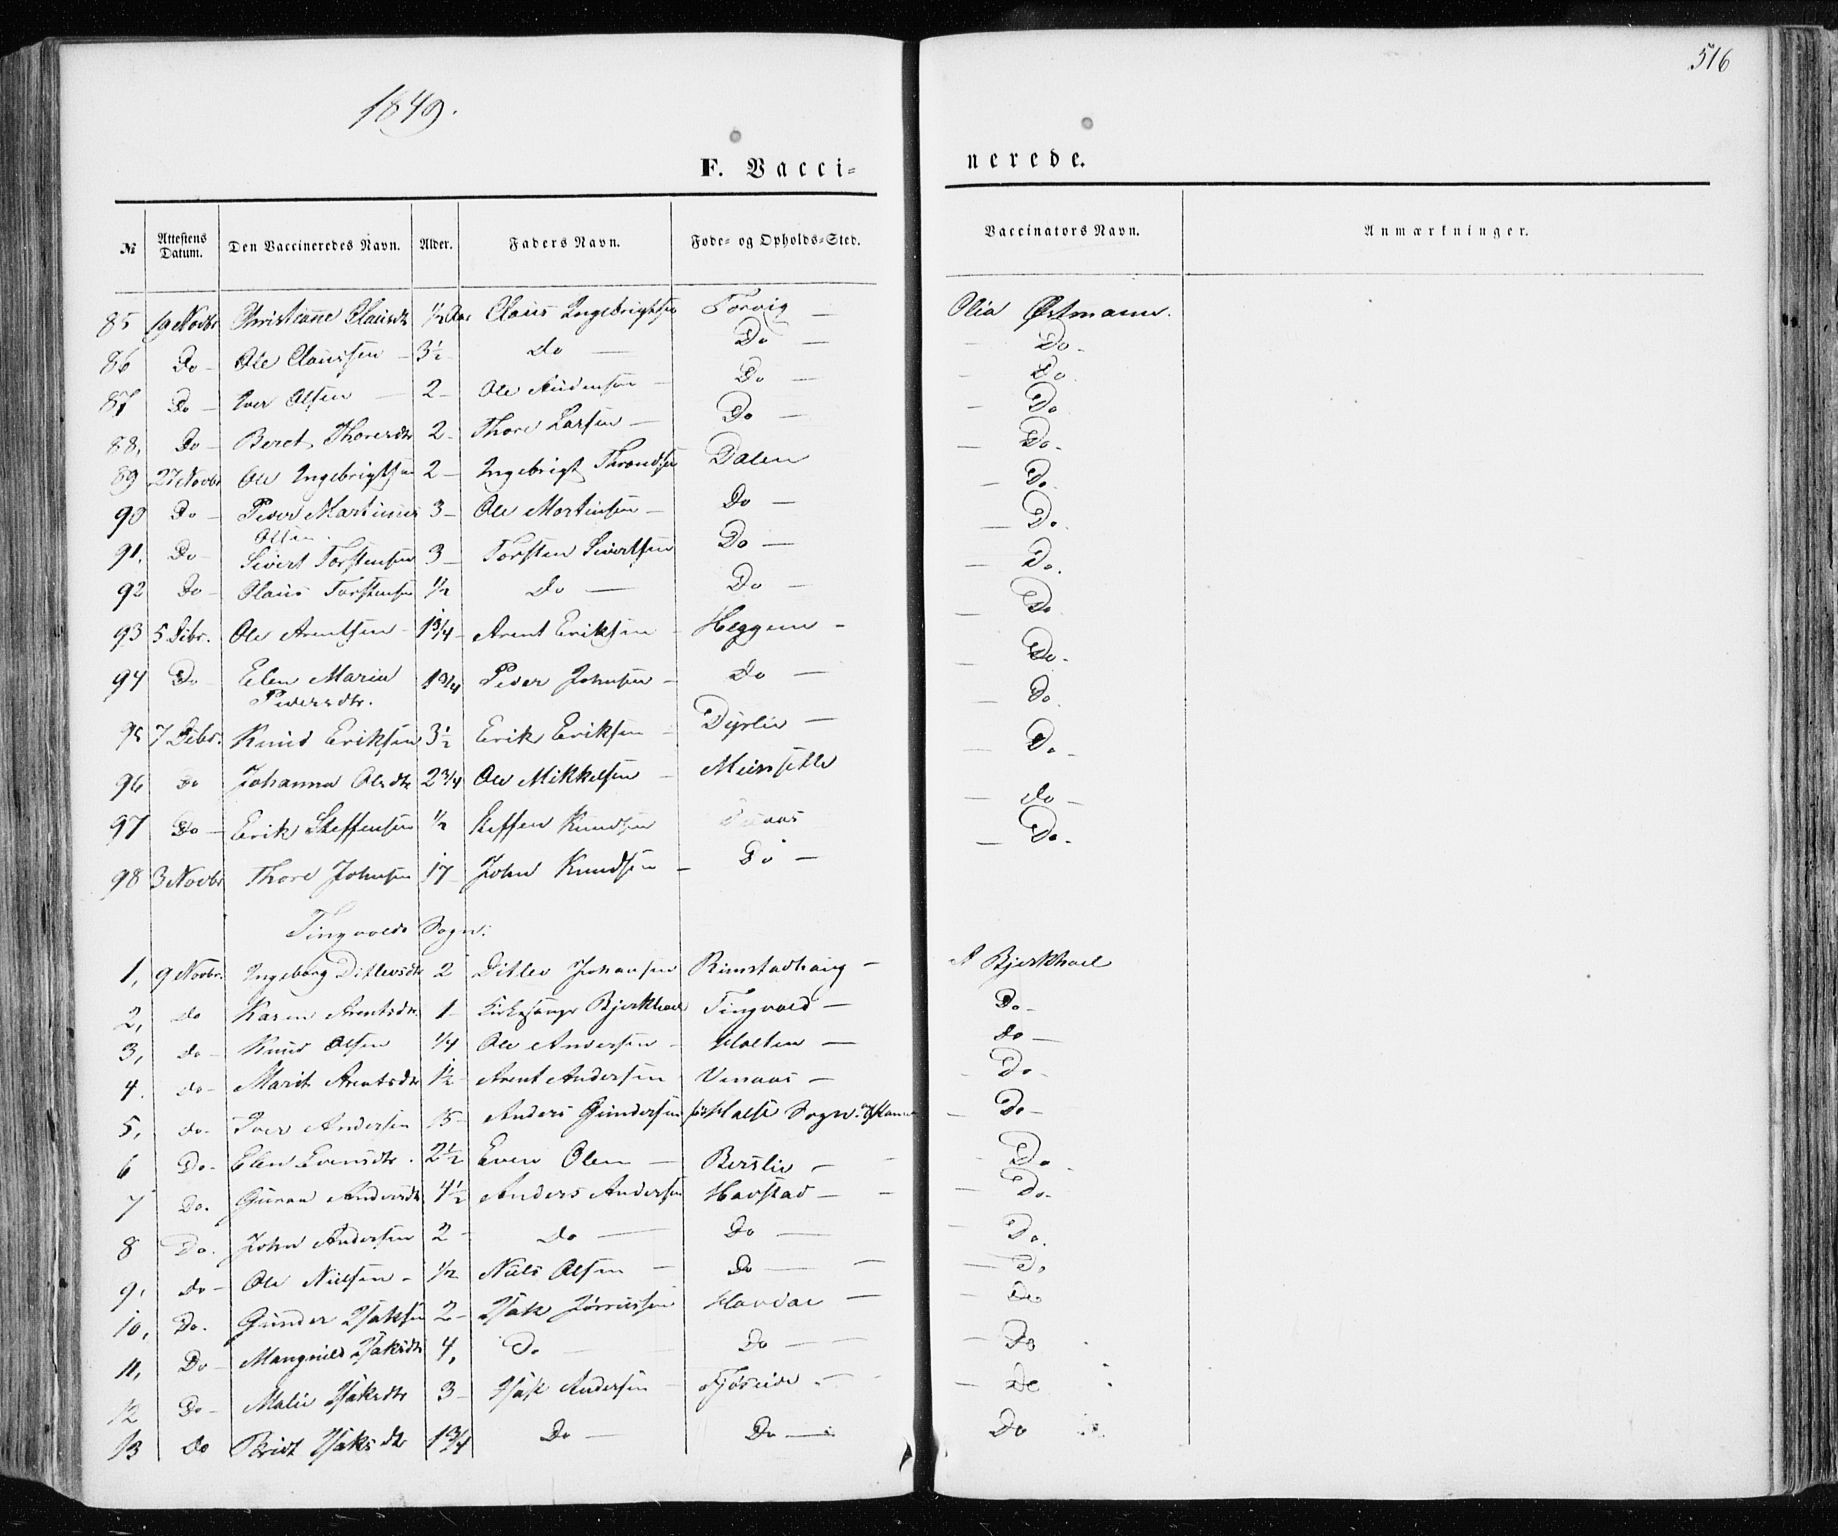 516
1849.
F. Vacci=
nerede.
№ Attestens Datum. Den Vaccineredes Navn. Alder. Faders Navn. Føde- og Opholds-Sted. Vaccinators Navn. Anmærkninger.
85 19 Novbr Christianne Clausdtr ½ Aar Claus Ingebrigtsen Torvig — Olia Østmann.
86 Do — Ole Claussen — 3½ — Do — Do — — Do —
87 Do — Iver Olsen — 2 — Ole Audensen — Do — — Do
88, Do — Beret Thoresdtr 2 — Thore Larsen — Do — — Do
89 27 Novbr Ole Ingebrigtsen 2 — Ingebrigt Throndsen Dalen — Do —
90 Do — Peder Martinus Olsen 3 — Ole Mortensen — Do — — Do.
91. Do Sivert Torstensen 3 — Torsten Sivertsen Do — — Do.
92 Do — Claus Torstensen ½ Do — Do — — Do.
93 5 Debr. Ole Arentsen — 1¾ — Arent Eriksen — Heggem — — Do
94 Do — Elen Maria Pedersdtr. 1¾ Peder Johnsen — Do — — Do.
95 7 Debr. Knud Eriksen 3½ Erik Eriksen — Dyrlie — — Do.
96 Do Johanna Olsdtr 2¾ Ole Mikkelsen — Meissetle — Do —
97 Do — Erik Steffensen ½ Steffen Knudsen — do —
98 3 Novbr Thore Johnsen 17 — John Knudsen — Do — — Do.
Tingvolds Sogn:
1, 9 Novbr. Ingeborg Ditlevsdtr 2 Ditlev Johansen Rimstadhaug — A Bjerkhoel
2, do Karen Arentsdtr 1 — Kirkesanger Bjerkhoel Tingvold — Do —
3, do — Knud Olsen ¼ Ole Andersen — Holten — do —
4. do — Marit Arentsdtr 1½ — Arent Andersen Vinaas — — Do —
5, do — Iver Andersen 15 — Anders Gundersen Halse Sogn — Do —
6 Do — Elen Evensdtr. 2½ Even Olsen — Berslie — — Do
7 Do. Guruu Andersdtr 4½ Anders Andersen Havstad — — Do.
8 Do. John Andersen 2 — Do — Do — — Do.
9, do — Ole Nielsen — ½ Niels Olsen — Do — — Do
10, Do. Gunder Isaksen 2 — Isak Jørrissen Havdal — — Do
11, Do — Mangnild Isaksdtr 4, Do — Do — — Do
12 Do — Malie Isaksdtr 3 — Isak Andersen — Fjøseide — — Do
13 Do Brit Isaksdtr 1¾ Do — Do — Do